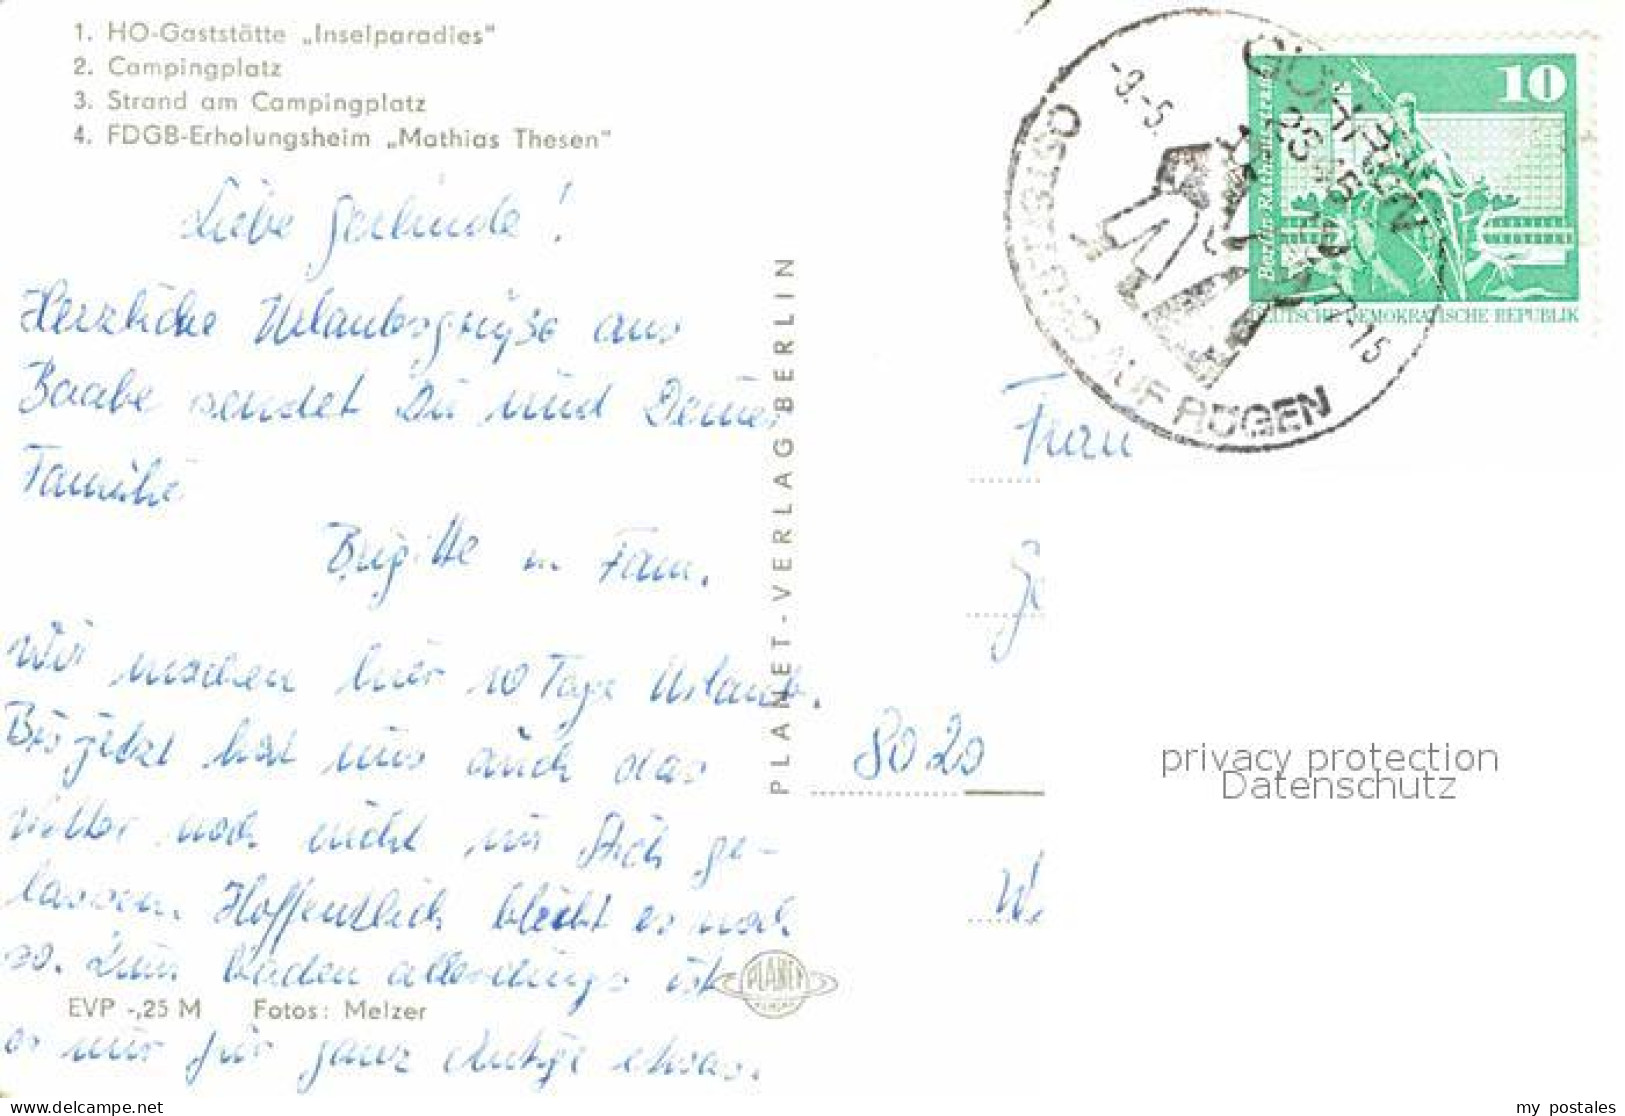 1. HO-Gaststätte „Inselparadies"
2. Campingplatz
3. Strand am Campingplatz
4. FDGB-Erholungsheim „Mathias Thesen"
Liebe Gerlinde!
Herzliche Urlaubsgrüße aus
Baabe sendet Dir und Deiner
Familie
Brigitte u Fam.
Wir machen hier 10 Tage Urlaub.
Bis jetzt hat uns auch das
Wetter noch nicht im Stich ge-
lassen. Hoffentlich bleibt es noch
so. Zum Baden allerdings ist
es nur für ganz Mutige etwas.
EVP -,25 M Fotos: Melzer
PLANET-VERLAG BERLIN
PLANET
VERLAG
10
Berlin-Rathausstraße
DEUTSCHE DEMOKRATISCHE REPUBLIK
GÖHREN
OSTSEEBAD
AUF RÜGEN
Frau
8020
privacy protection
Datenschutz
my postales